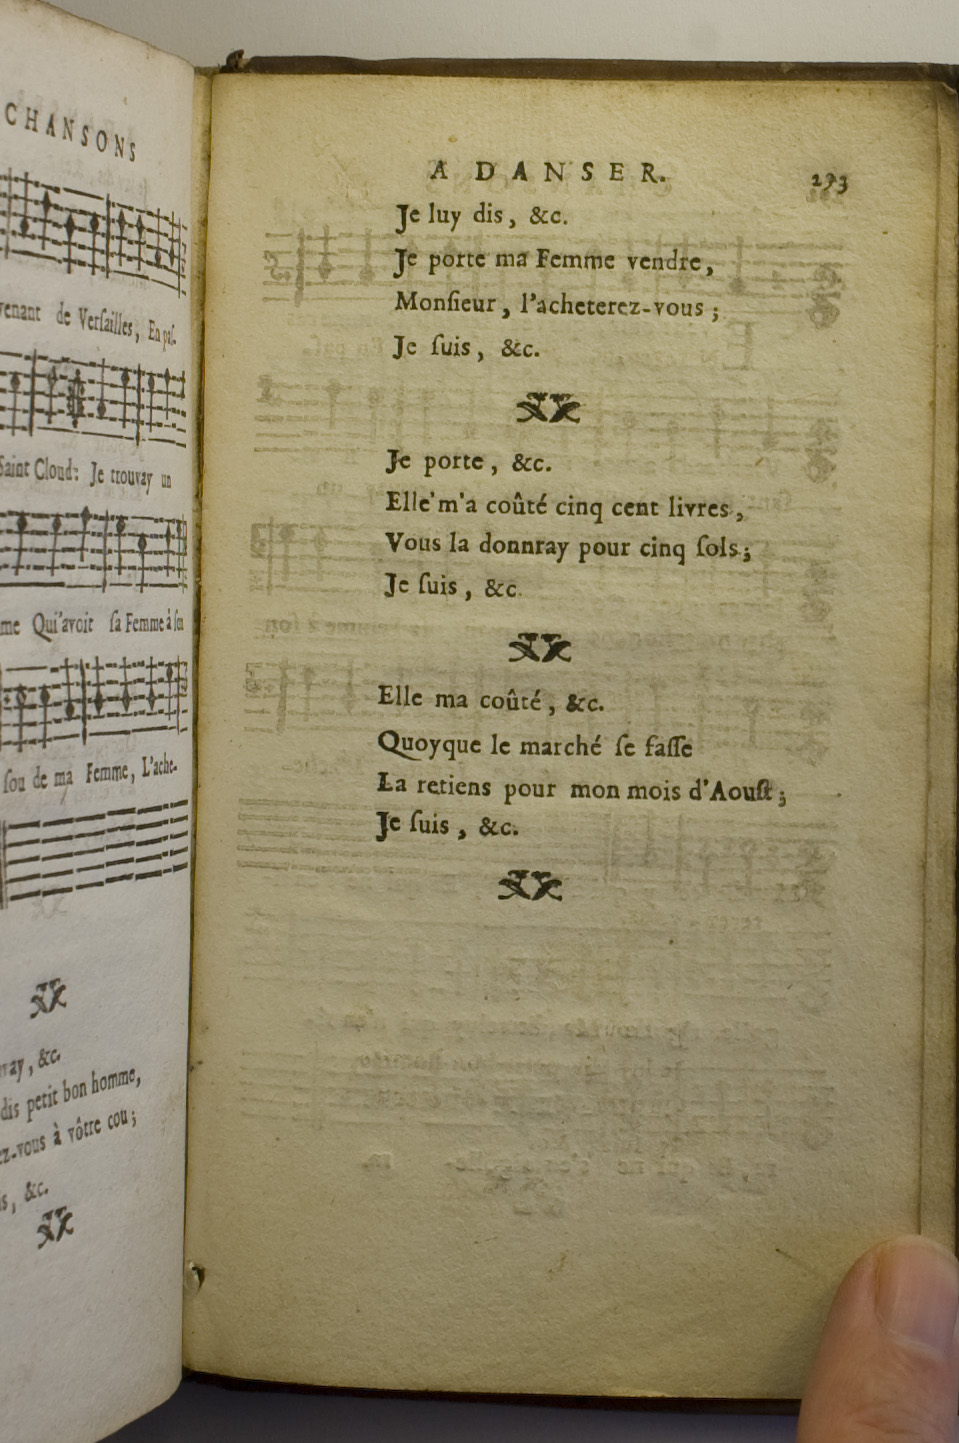 CHANSONS
de Versailles, En pas-
Saint Cloud: Je trouvay un
Qu'avoit sa Femme à son
sou de ma Femme, L'ache-
&c.
dis petit bon homme,
vous à vôtre cou;
&c.
A DANSER. 293
Je luy dis, &c.
Je porte ma Femme vendre,
Monſieur, l'acheterez-vous;
Je ſuis, &c.
Je porte, &c.
Elle'm'a coûté cinq cent livres,
Vous la donnray pour cinq ſols;
Je ſuis, &c.
Elle ma coûté, &c.
Quoyque le marché ſe faſſe
La retiens pour mon mois d'Aouſt;
Je ſuis, &c.